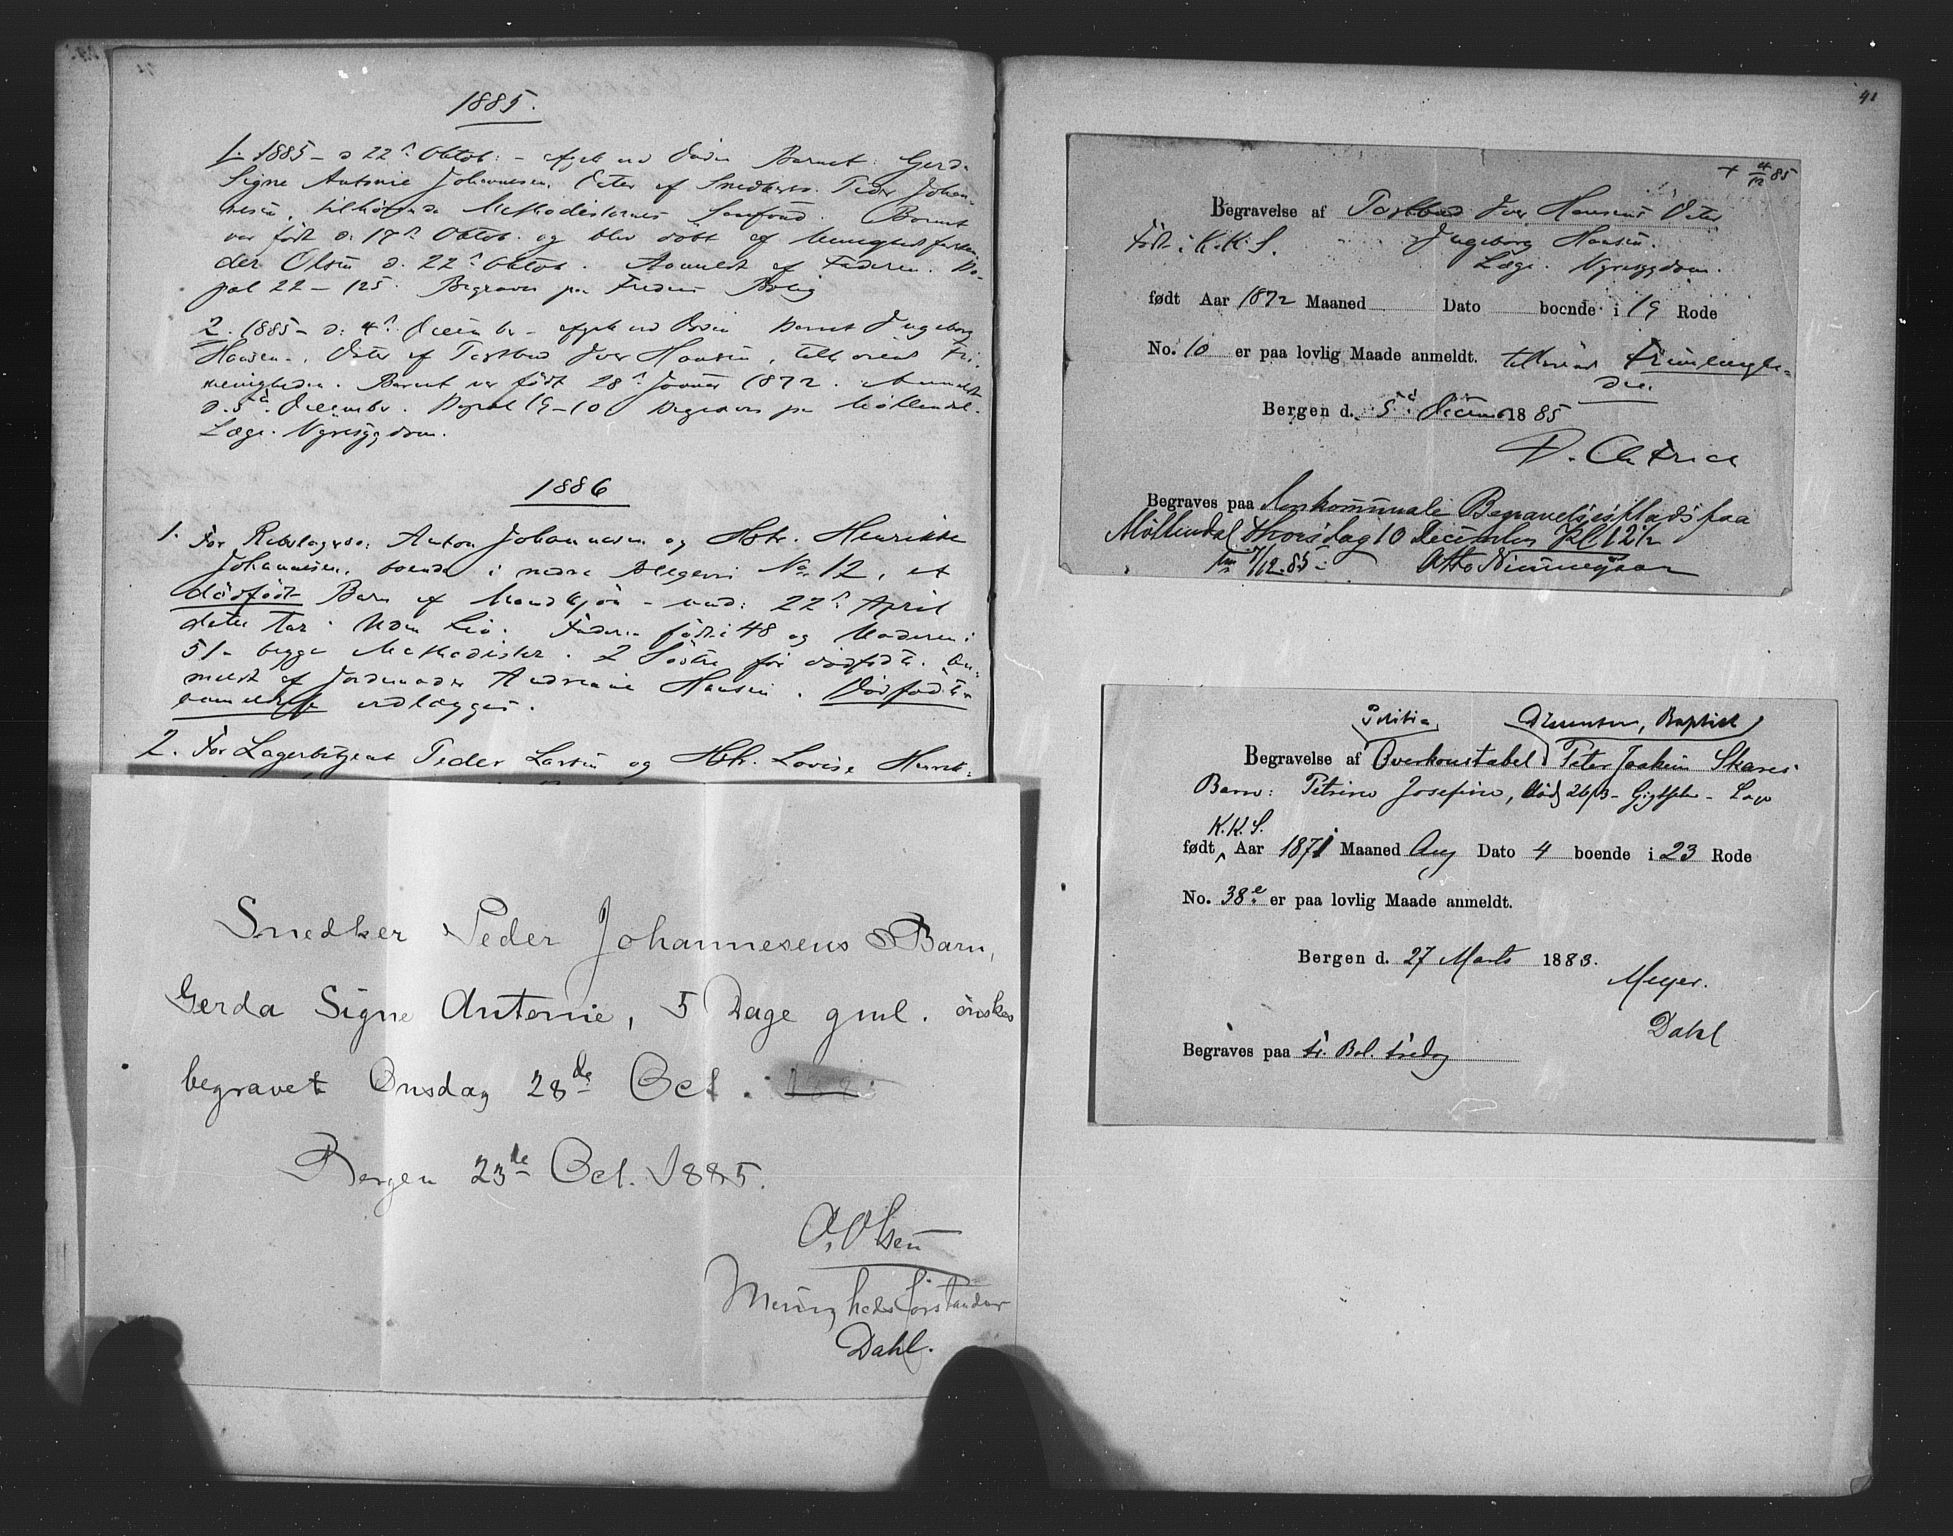 1885.
1. 1885 - d 22de Oktob: - afgik ved Døden Barnet: Gerda
Signe Antonie Johannesen, Dater af Snedkers. Peder Johan-
nesen, tilhørende Methodisternes Samfund. Barnet
var født d. 17de Oktob. og blev døbt af Menighedsforstan
der Olsen d. 22de Oktob. Anmeldt af Faderen. Bo-
pæl 22 - 125. Begraves paa Fredens Bolig
2. 1885 - d: 4de Decembr - afgik ved Døden Barnet Ingeborg
Hansen. Dater af Postbud Iver Hansen, tilhørende Fri-
menigheden. Barnet var født 28de Januar 1872. Anmeldt
d. 5te Decembr. Bopæl 19-10 Begraves paa Møllendal.
Læge. Nyresygdom.
1886
1. For Rebslagersv: Anton Johannesen og Hstr. Henrikke
Johannesen, boende i nedre No 12, et
dødfødt Barn af Mandkjøn - 22de April
dette Aar. Uden Liv. Faderen født i 48 og Moderen i
51 - begge Methodister. 2 Søstre før dødfødte. An-
meldt af Jordemoder Andreane Hansen. Dødfødte
anmeldelse vedlægges.
2. For Lagerbetjent Peder Larsen og Hstr. Lovise Henrik-
Snedker Peder Johannesens Barn,
Gerda Signe Antonie, 5 Dage gml. önskes
begravet Onsdag 28de Oct.
Bergen 23de Oct. 1885.
O. Olsen
Menighedsforstander
Dahl.
41
+ 4/12 85
Begravelse af Postbud Iver Hansens Dater
Født i K.K.S. Ingeborg Hansen.
Læge. Nyresygdom.
født Aar 1872 Maaned Dato boende i 19 Rode
No. 10 er paa lovlig Maade anmeldt. tilhørende Frimenighe-
den.
Bergen d. 5te Decemb 1885
Begraves paa den kommunale Begravelsesplads paa
Møllendal Thorsdag 10 December Kl 12½
7/12.85 Otto Nimmegaar
Politie Dissenter, Baptist
Begravelse af Overkonstabel Peter Joakim Skares
Barn: Petrine Josefine, død 26/3 - Gigtfeber - Læge
K.K.S.
født Aar 1871 Maaned Aug Dato 4 boende i 23 Rode
No. 38e er paa lovlig Maade anmeldt.
Bergen d. 27 Marts 1883.
Meyer.
Dahl
Begraves paa fr. Bol. fredag